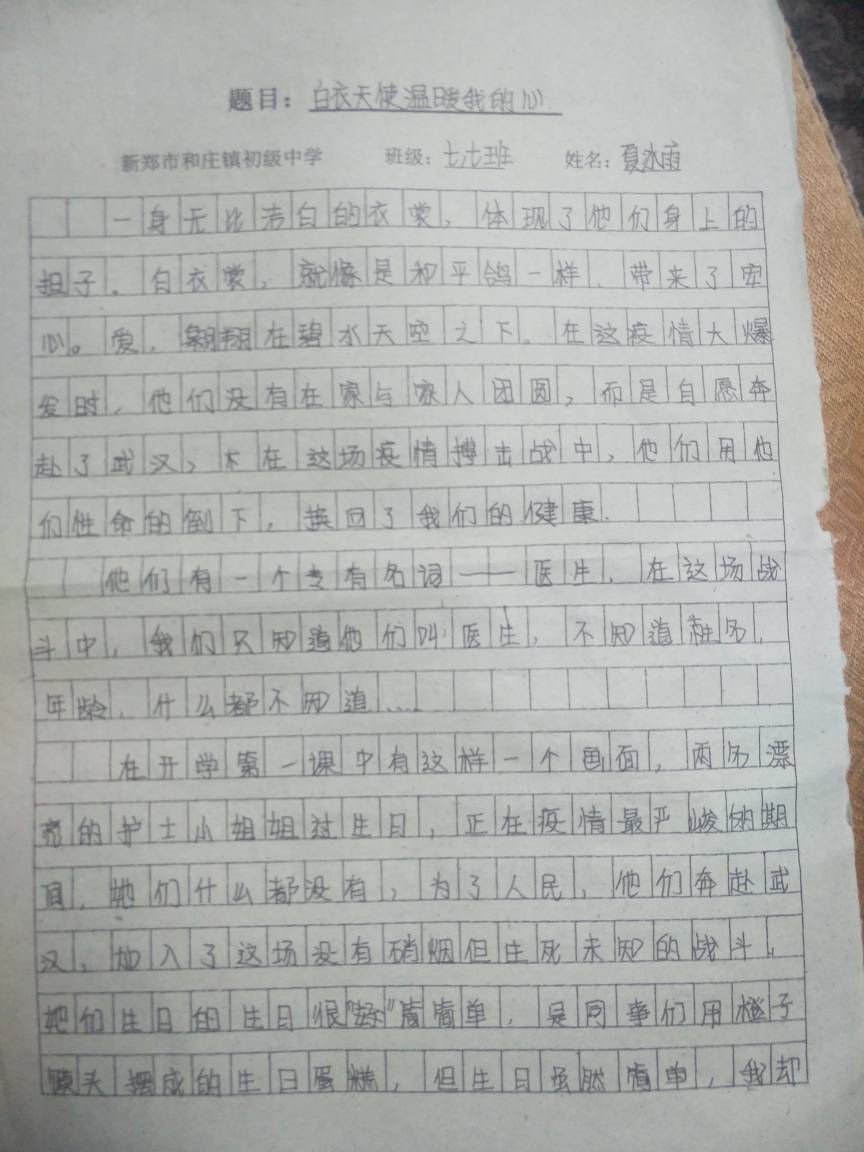 题目：白衣天使温暖我的心
新郑市和庄镇初级中学 班级：七七班 姓名：夏冰雨
一身无比洁白的衣裳，体现了他们身上的
担子。白衣裳，就像是和平鸽一样，带来了安
心。爱，翱翔在碧水天空之下。在这疫情大爆
发时，他们没有在家与家人团圆，而是自愿奔
赴了武汉，在这场疫情搏击战中，他们用他
们性命的倒下，换回了我们的健康.
他们有一个专有名词——医生，在这场战
斗中，我们只知道他们叫医生，不知道姓名，
年龄，什么都不知道...
在开学第一课中有这样一个画面，两名漂
亮的护士小姐姐过生日，正在疫情最严峻的期
间，她们什么都没有，为了人民，他们奔赴武
汉，加入了这场没有硝烟但生死未知的战斗。
她们生日的生日很简单，是同事们用橙子
馒头摆成的生日蛋糕，但生日虽然简单，我却